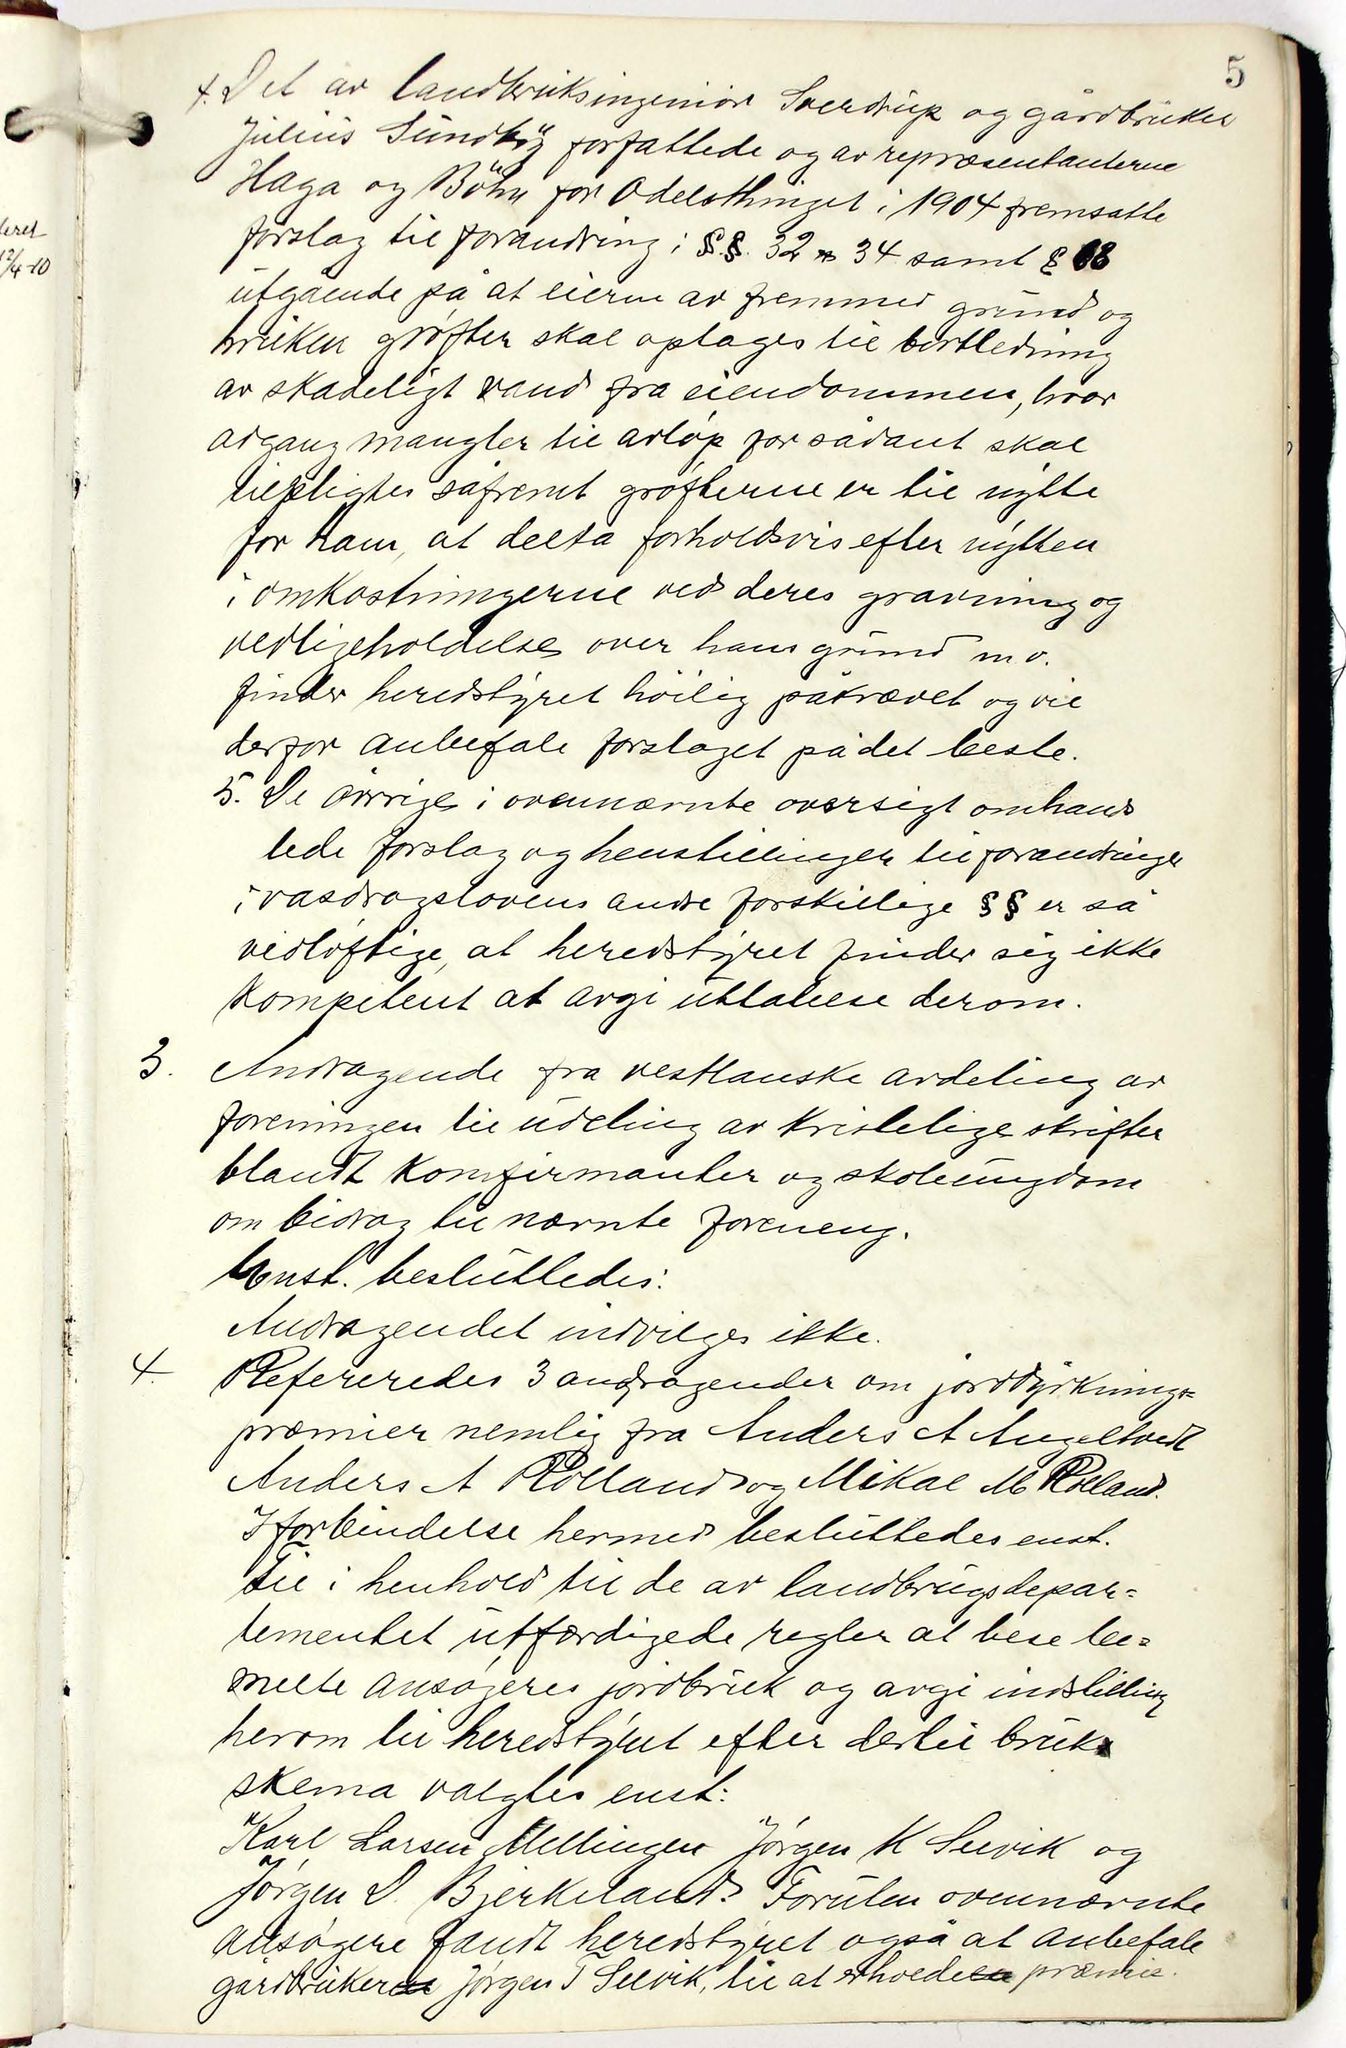 5
4. Det av landbruksingeniør Sverdrup og gårdbruker
Julius Sundby forfattede og av repræsentanterne
Haga og Böhn for Odelsthinget i 1904 fremsatte
forslag til forandring i §.§. 32 34 samt §
utgående på at eierne av fremmed grund og
bruken grøfter skal optages til bortledning
av skadeligt vand fra eiendommen, hvor
adgang mangler til avløp for sådant skal
tilpligtes såfremt grøfterne er til nytte
for ham, at delta forholdsvis efter nytten
i omkostningerne ved deres gravning og
vedligeholdelse over hans grund m v.
finder heredstyret höilig påkrævet og vil
derfor anbefale forslaget på det beste.
5. De øvrige i ovennævnte oversigt omhand
lede forslag og henstillinger til forandringer
i vasdragslovens andre forskillige §§ er så
vidløftige, at heredstyret finder sig ikke
kompetent at avgi uttalelse derom.
3. Andragende fra vestlanske avdeling av
foreningen til udeling av kristelige skrifter
blandt komfirmanter og skoleungdom
om bidrag til nævnte foreneng.
Enst. besluttedes:
Andragendet indvilges ikke.
4. Refereredes 3 andragender om jorddyrknings=
præmier nemlig fra Anders A Angeltvedt
Anders A Rolland og Mikal M Rolland.
I forbindelse hermed besluttedes enst.
Til i henhold til de av landbrugsdepar=
tementet utfærdigede regler at bese be=
melte ansøgeres jordbruk og avgi indstilling
herom til heredstyret efter dertil bruk
skema valgtes enst:
Karl Larsen Mellingen Jørgen K Selvik og
Jørgen D. Bjerkeland. Foruten ovennævnte
ansøgere fandt heredstyret også at anbefale
gårdbruker Jørgen T Selvik, til at erholde præmie.
deret
12/4-10